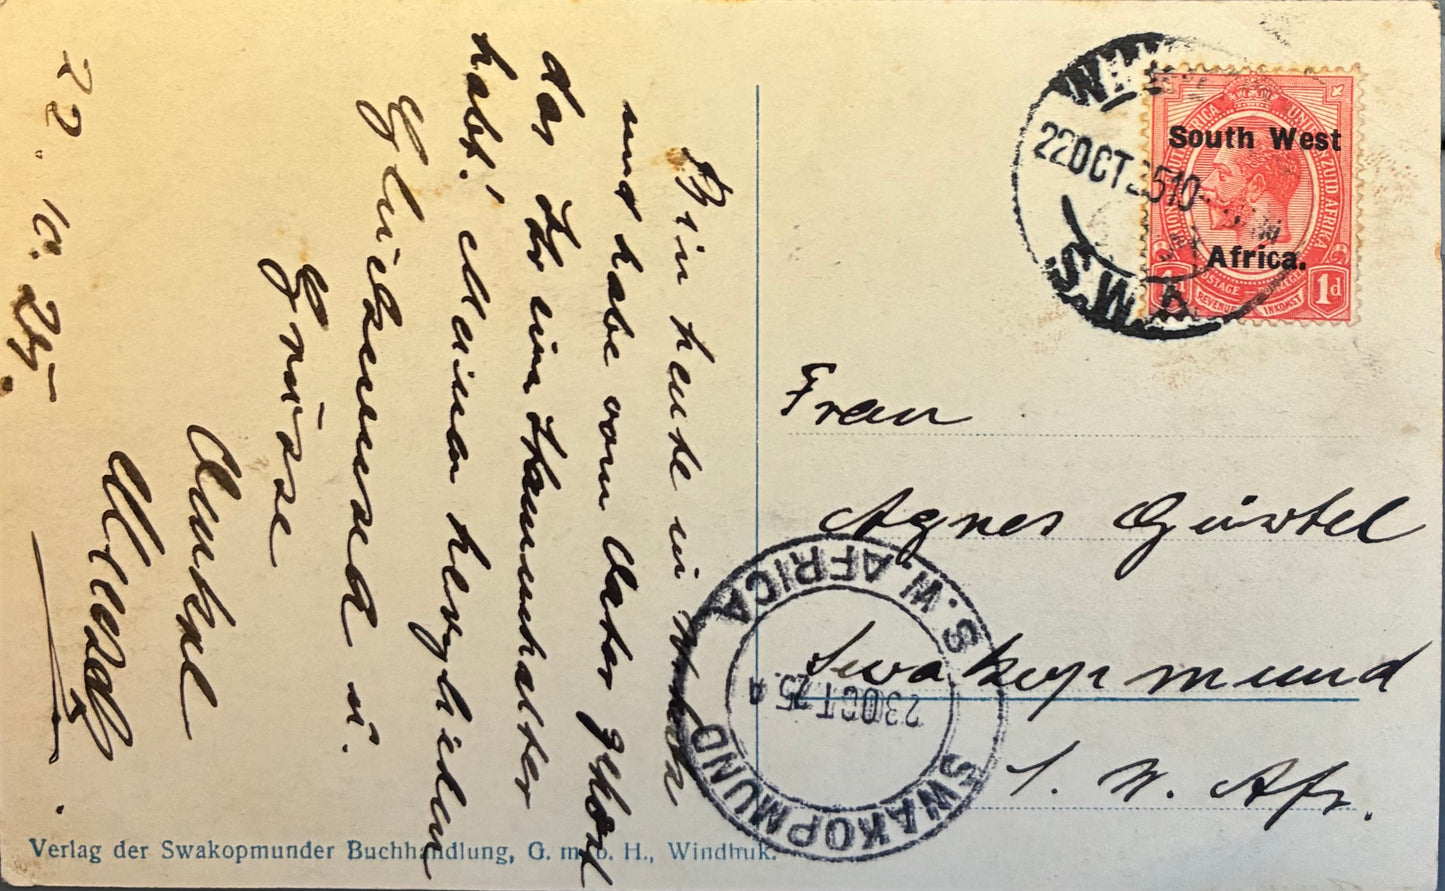 22.10.25.
Bin heute in
und habe vom Vater gehört
das Ihr ein Stammhalter
habt! Meinen herzlichen
Glückwunsch u.
Grüsse
Onkel
Verlag der Swakopmunder Buchhandlung, G. m. b. H., Windhuk.
22 OCT 25 10
S.W.A
UNIE VAN ZUID AFRIKA
South West
Africa.
POSTAGE POSTZEGEL
REVENUE INKOMST
1 1d
Frau
Agnes Gürtel
Swakopmund
S. W. Afr.
S.W AFRICA
23 OCT 25
SWAKOPMUND